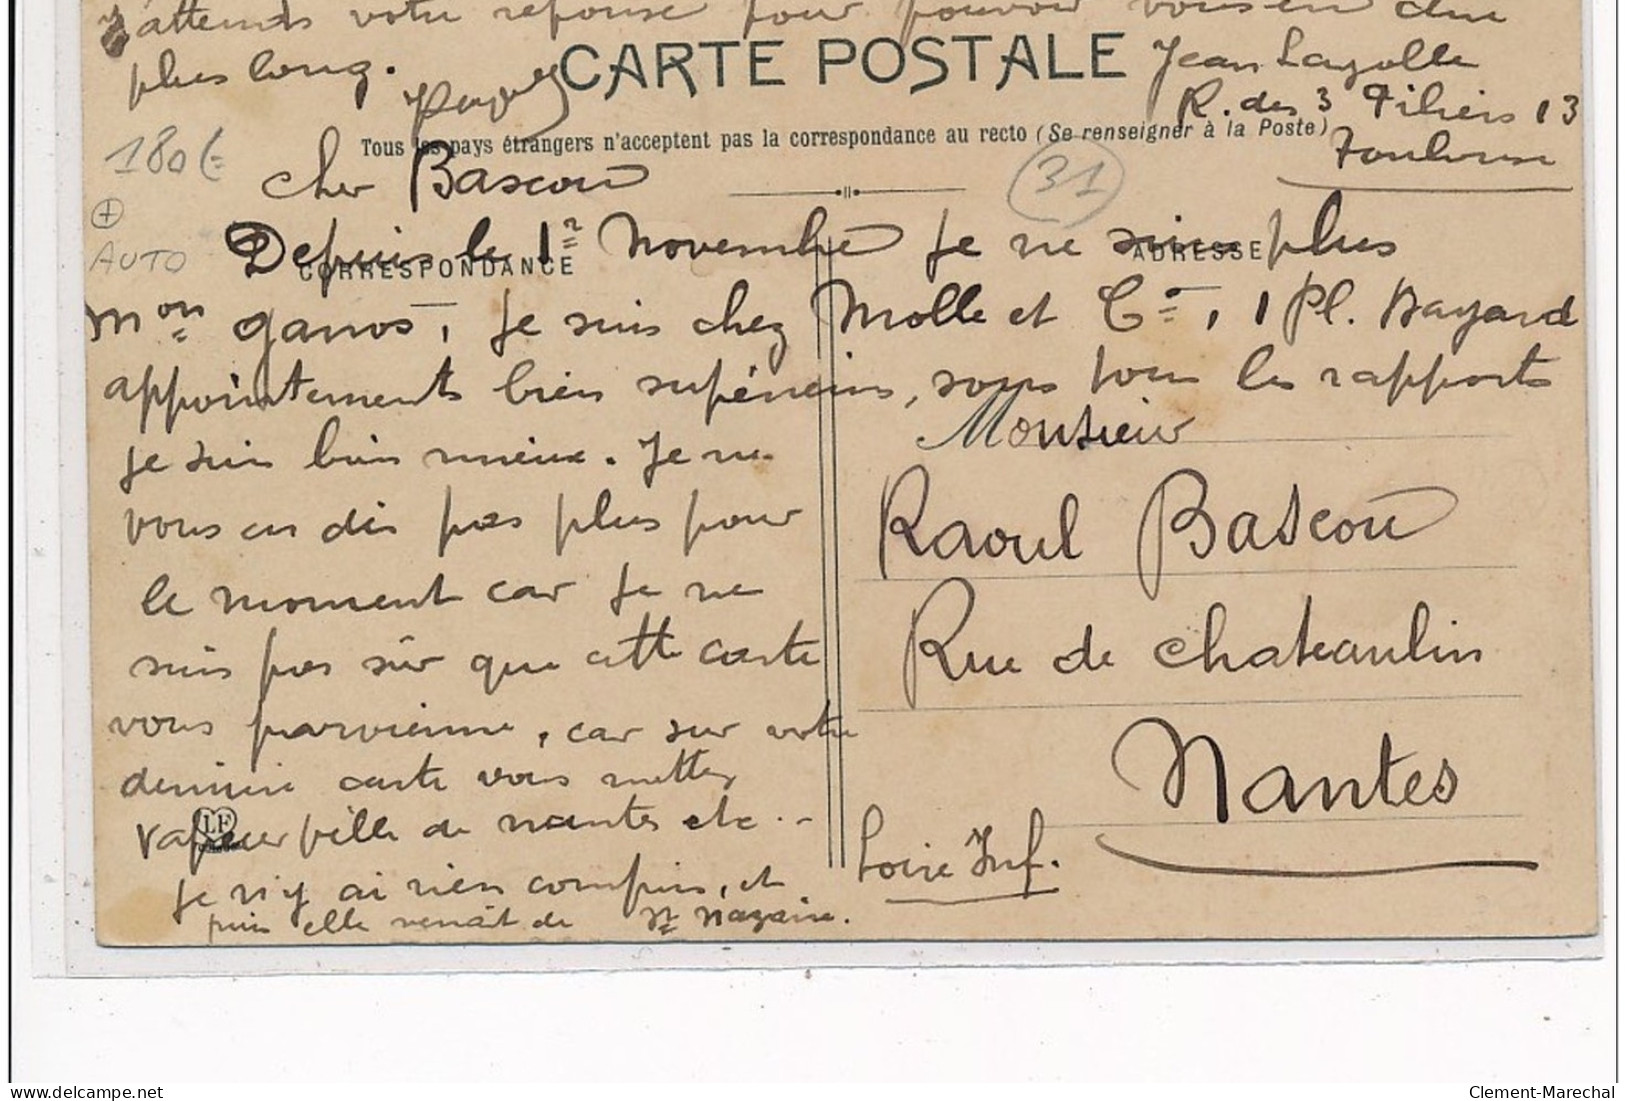 J'attends votre réponse pour pouvoir vous en dire
plus long.
CARTE POSTALE
Jean Lazolle
R. des 3 Filiers 13
Toulouse
Tous les pays étrangers n'acceptent pas la correspondance au recto (Se renseigner à la Poste)
180 €
31
+
AUTO
Cher Bascou
Depuis le 1r Novembre je ne suis plus
CORRESPONDANCE
ADRESSE
mon ganos, je suis chez Molle et Cie, 1 Pl. Bayard
appointements bien supérieurs, sous tous les rapports
je suis bien mieux. Je ne
vous en dis pas plus pour
le moment car je ne
suis pas sûr que cette carte
vous parvienne, car sur votre
dernière carte vous mettez
vapeur ville de nantes etc..
LF
Je n'y ai rien compris, et
puis elle venait de St Nazaire.
Monsieur
Raoul Bascou
Rue de Chateaulin
Nantes
Loire Inf.
delcampe.net
Clement-Marechal